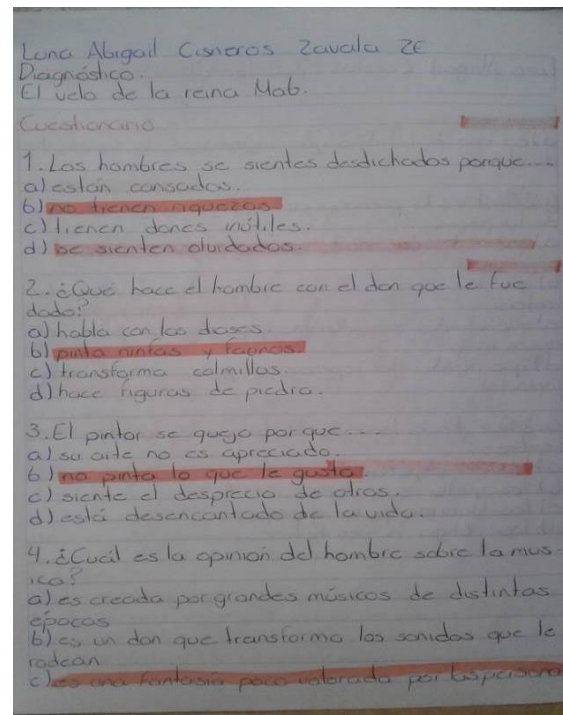 Luna Abigail Cisneros Zavala 2E
Diagnóstico.
El velo de la reina Mab.
Cuestionario
1. Los hombres se sientes desdichados porque...
a) están cansados.
b) no tienen riquezas
c) tienen dones inútiles.
d) se sienten olvidados.
2. ¿Qué hace el hombre con el don que le fue
dado?
a) habla con los dioses
b) pinta ninfas y faunos.
c) transforma colmillos.
d) hace figuras de piedra.
3. El pintor se queja porque...
a) su arte no es apreciado.
b) no pinta lo que le gusta.
c) siente el desprecio de otros.
d) está desencantado de la vida.
4. ¿Cuál es la opinión del hombre sobre la mus-
ica?
a) es creada por grandes músicos de distintas
épocas
b) es un don que transforma los sonidos que le
rodean
c) es una fantasía poco valorada por las persona